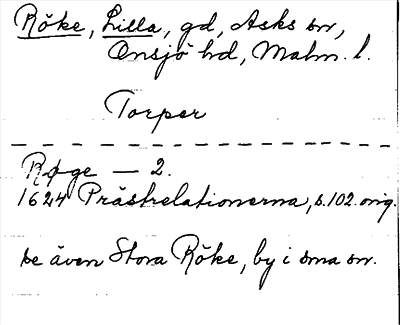 Röke, Lilla, gd, Asks sn,
Onsjö hd, Malm. l.
Torper
Røge — 2.
1624 Prästrelationerna, s. 102. orig.
se även Stora Röke, by i sma sn.